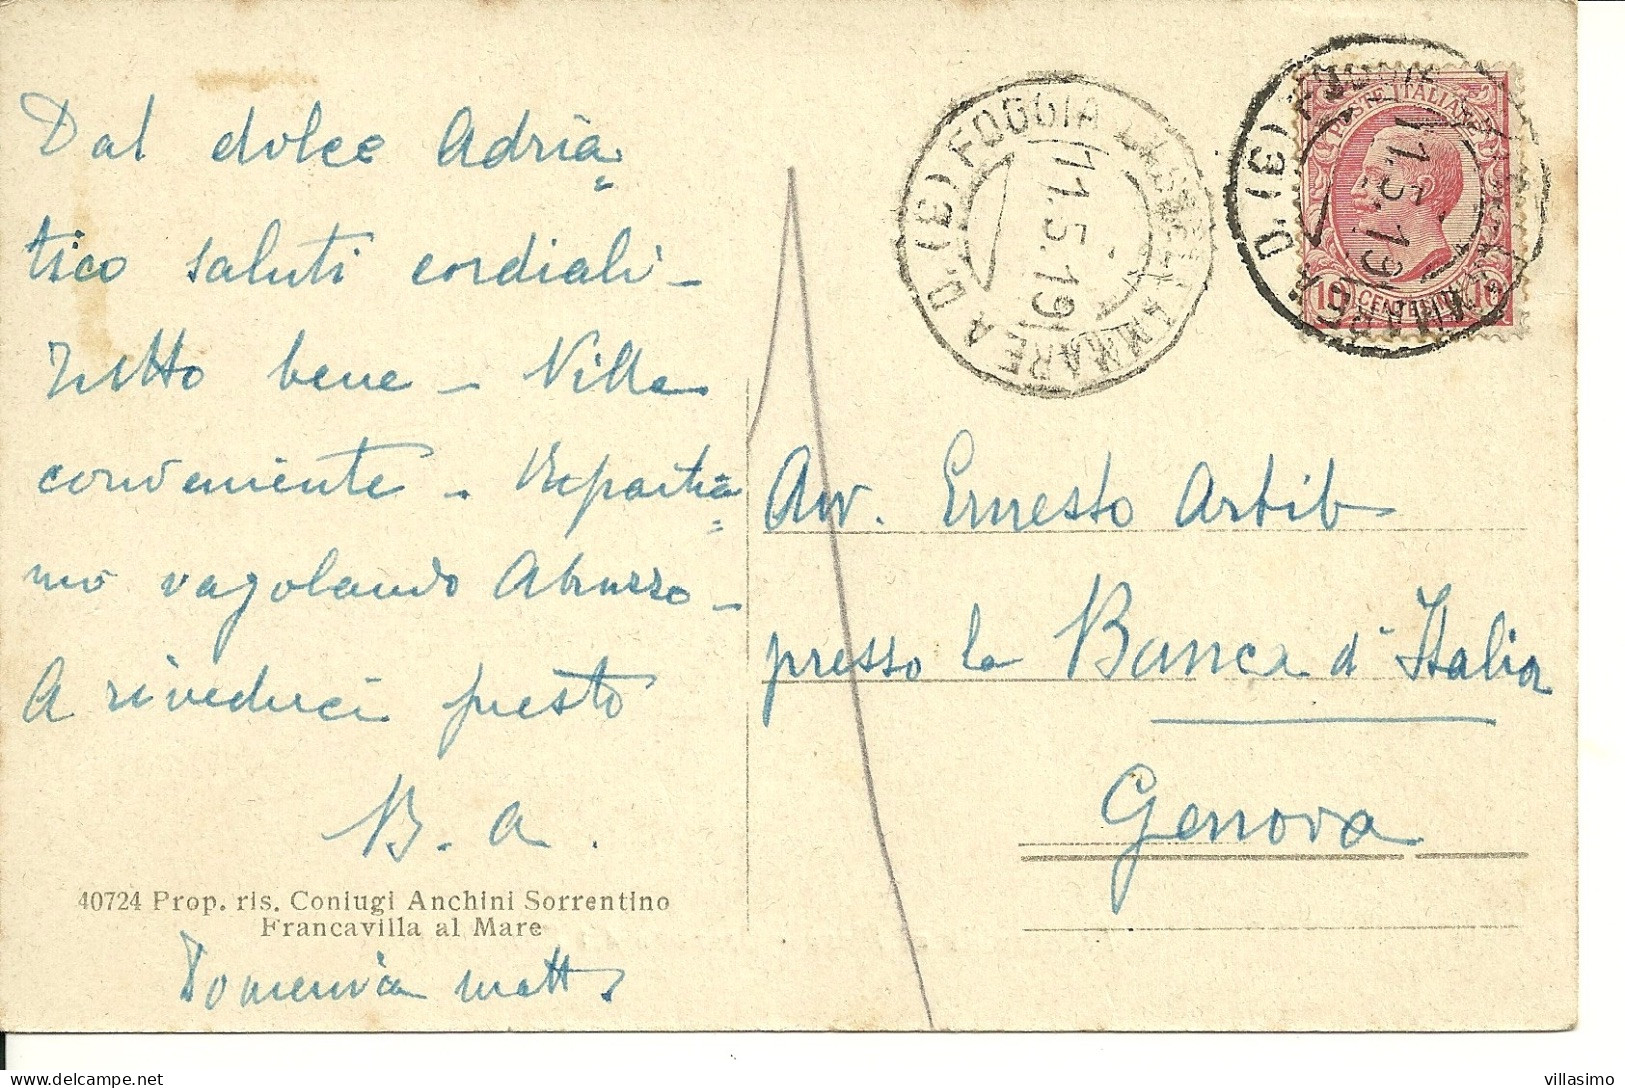 Dal dolce Adria=
tico saluti cordiali –
Tutto bene – Villa
conveniente – Ripartia=
mo vagolando Abruzzo –
A rivederci presto
B. A.
40724 Prop. ris. Coniugi Anchini Sorrentino
Francavilla al Mare
Domenica matt
FOGGIA CASTELLAMMARE A D. (3)
11.5.19
POSTE ITALIANE
CENTESIMI 10
11.5.19
Avv. Ernesto Artib
presso la Banca d'Italia
Genova
delcampe.net
villasimo